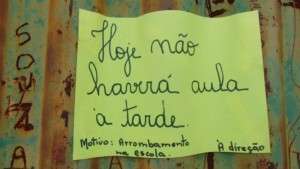 SOUZA
Hoje não
havrrá aula
à tarde.
Motivo: Arrombamento
na escola.
A direção